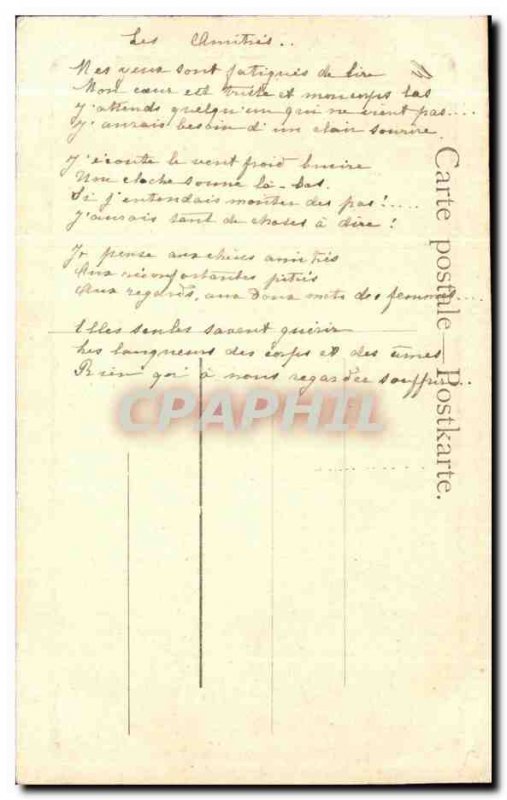 Les Amitiés..
Mes yeux sont fatigués de lire
Mon cœur est triste et mon corps las
J'attends quelqu'un qui ne vient pas....
J'aurais besoin d'un clair sourire.
J'écoute le vent froid bruire
Une cloche sonne là-bas.
Si j'entendais monter des pas!....
J'aurais tant de choses à dire!
Je pense aux chères amitiés
Aux réconfortantes pitiés
Aux regards, aux doux mots des femmes....
Elles seules savent guérir
Les langueurs des corps et des âmes
Rien qu'à nous regarder souffrir...
Carte postale — Postkarte.
CPAPHIL